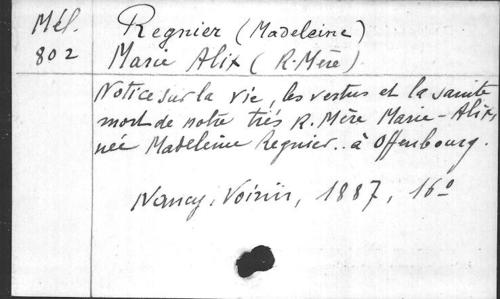 Mél. Regnier (Madeleine)
802 Marie Alix (R. Mère)
Notice sur la vie, les vertus et la sainte
mort de notre très R. Mère Marie-Alix,
née Madeleine Regnier.. à Offenbourg.
Nancy, Voirin, 1887, 16º